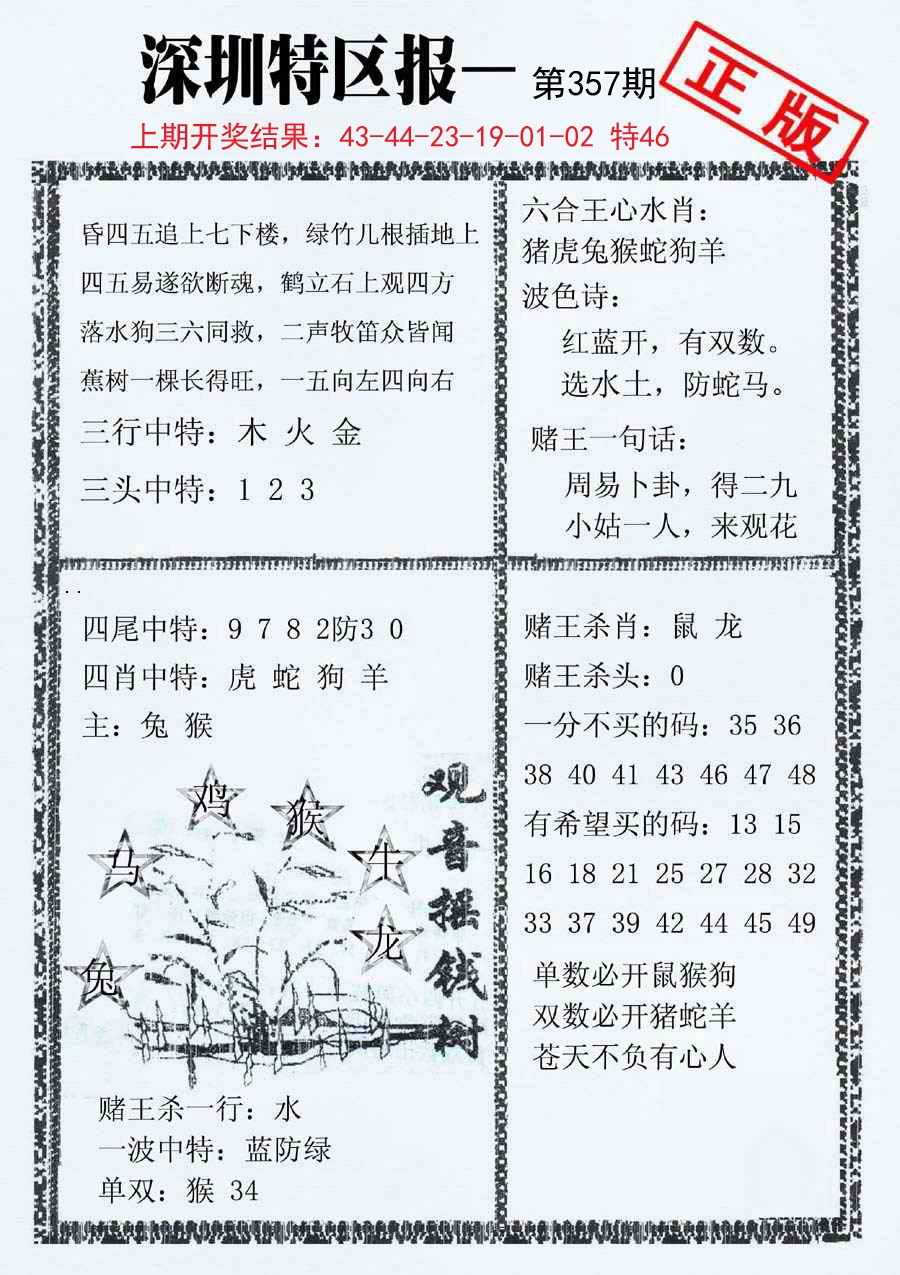 深圳特区报—
第357期
正版
上期开奖结果：43-44-23-19-01-02 特46
昏四五追上七下楼，绿竹儿根插地上
四五易遂欲断魂，鹤立石上观四方
落水狗三六同救，二声牧笛众皆闻
蕉树一棵长得旺，一五向左四向右
三行中特：木 火 金
三头中特：1 2 3
六合王心水肖：
猪虎兔猴蛇狗羊
波色诗：
红蓝开，有双数。
选水土，防蛇马。
赌王一句话：
周易卜卦，得二九
小姑一人，来观花
四尾中特：9 7 8 2防3 0
四肖中特：虎 蛇 狗 羊
主：兔 猴
鸡
猴
马
牛
龙
兔
观音摇钱树
赌王杀一行：水
一波中特：蓝防绿
单双：猴 34
赌王杀肖：鼠 龙
赌王杀头：0
一分不买的码：35 36
38 40 41 43 46 47 48
有希望买的码：13 15
16 18 21 25 27 28 32
33 37 39 42 44 45 49
单数必开鼠猴狗
双数必开猪蛇羊
苍天不负有心人